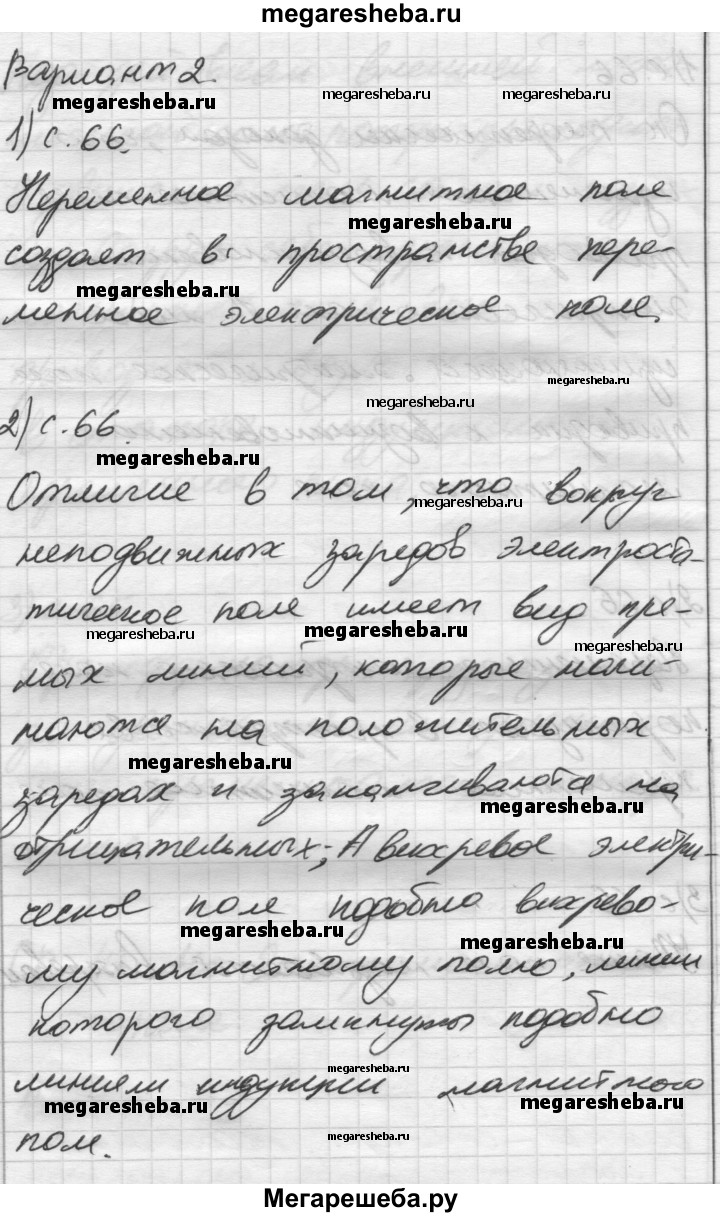 megaresheba.ru
Вариант 2.
megaresheba.ru
megaresheba.ru
1) с. 66.
Переменное магнитное поле
megaresheba.ru
создает в пространстве пере-
megaresheba.ru
менное электрическое поле.
megaresheba.ru
megaresheba.ru
2) с. 66.
megaresheba.ru
Отличие в том, что вокруг
megaresheba.ru
неподвижных зарядов электроста-
тическое поле имеет вид пре-
megaresheba.ru
megaresheba.ru
megaresheba.ru
мых линий, которые начи-
наются на положительных
megaresheba.ru
зарядах и заканчиваются на
megaresheba.ru
отрицательных; А вихревое электри-
ческое поле подобно вихрево-
megaresheba.ru
megaresheba.ru
му магнитному полю, линии
которого замкнуты подобно
megaresheba.ru
линиям индукции магнитного
megaresheba.ru
megaresheba.ru
поля.
megaresheba.ru
Мегарешеба.ру